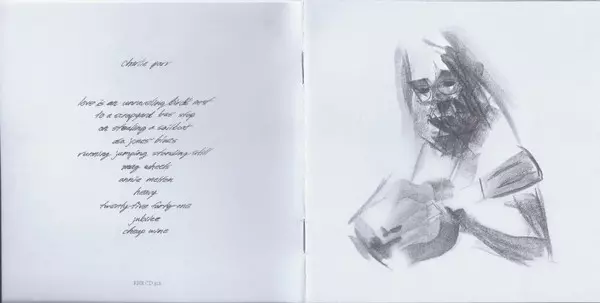 charlie parr
love is an unraveling bird's nest
to a scrapyard bus stop
on stealing a sailboat
asa jones' blues
running jumping standing still
mag wheels
annie melton
heavy
twenty-five forty-one
jubilee
cheap wine